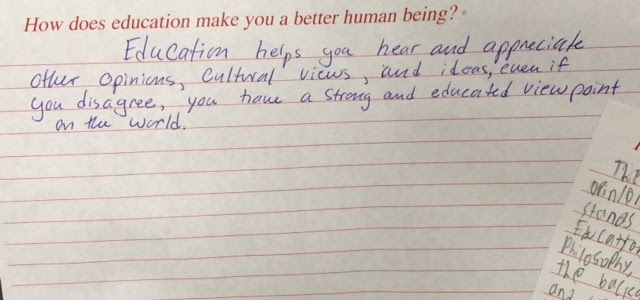 How does education make you a better human being?
Education helps you hear and appreciate
other opinions, cultural views, and ideas, even if
you disagree, you have a strong and educated viewpoint
on the world.
The
stands
Education
Philosophy
the
and